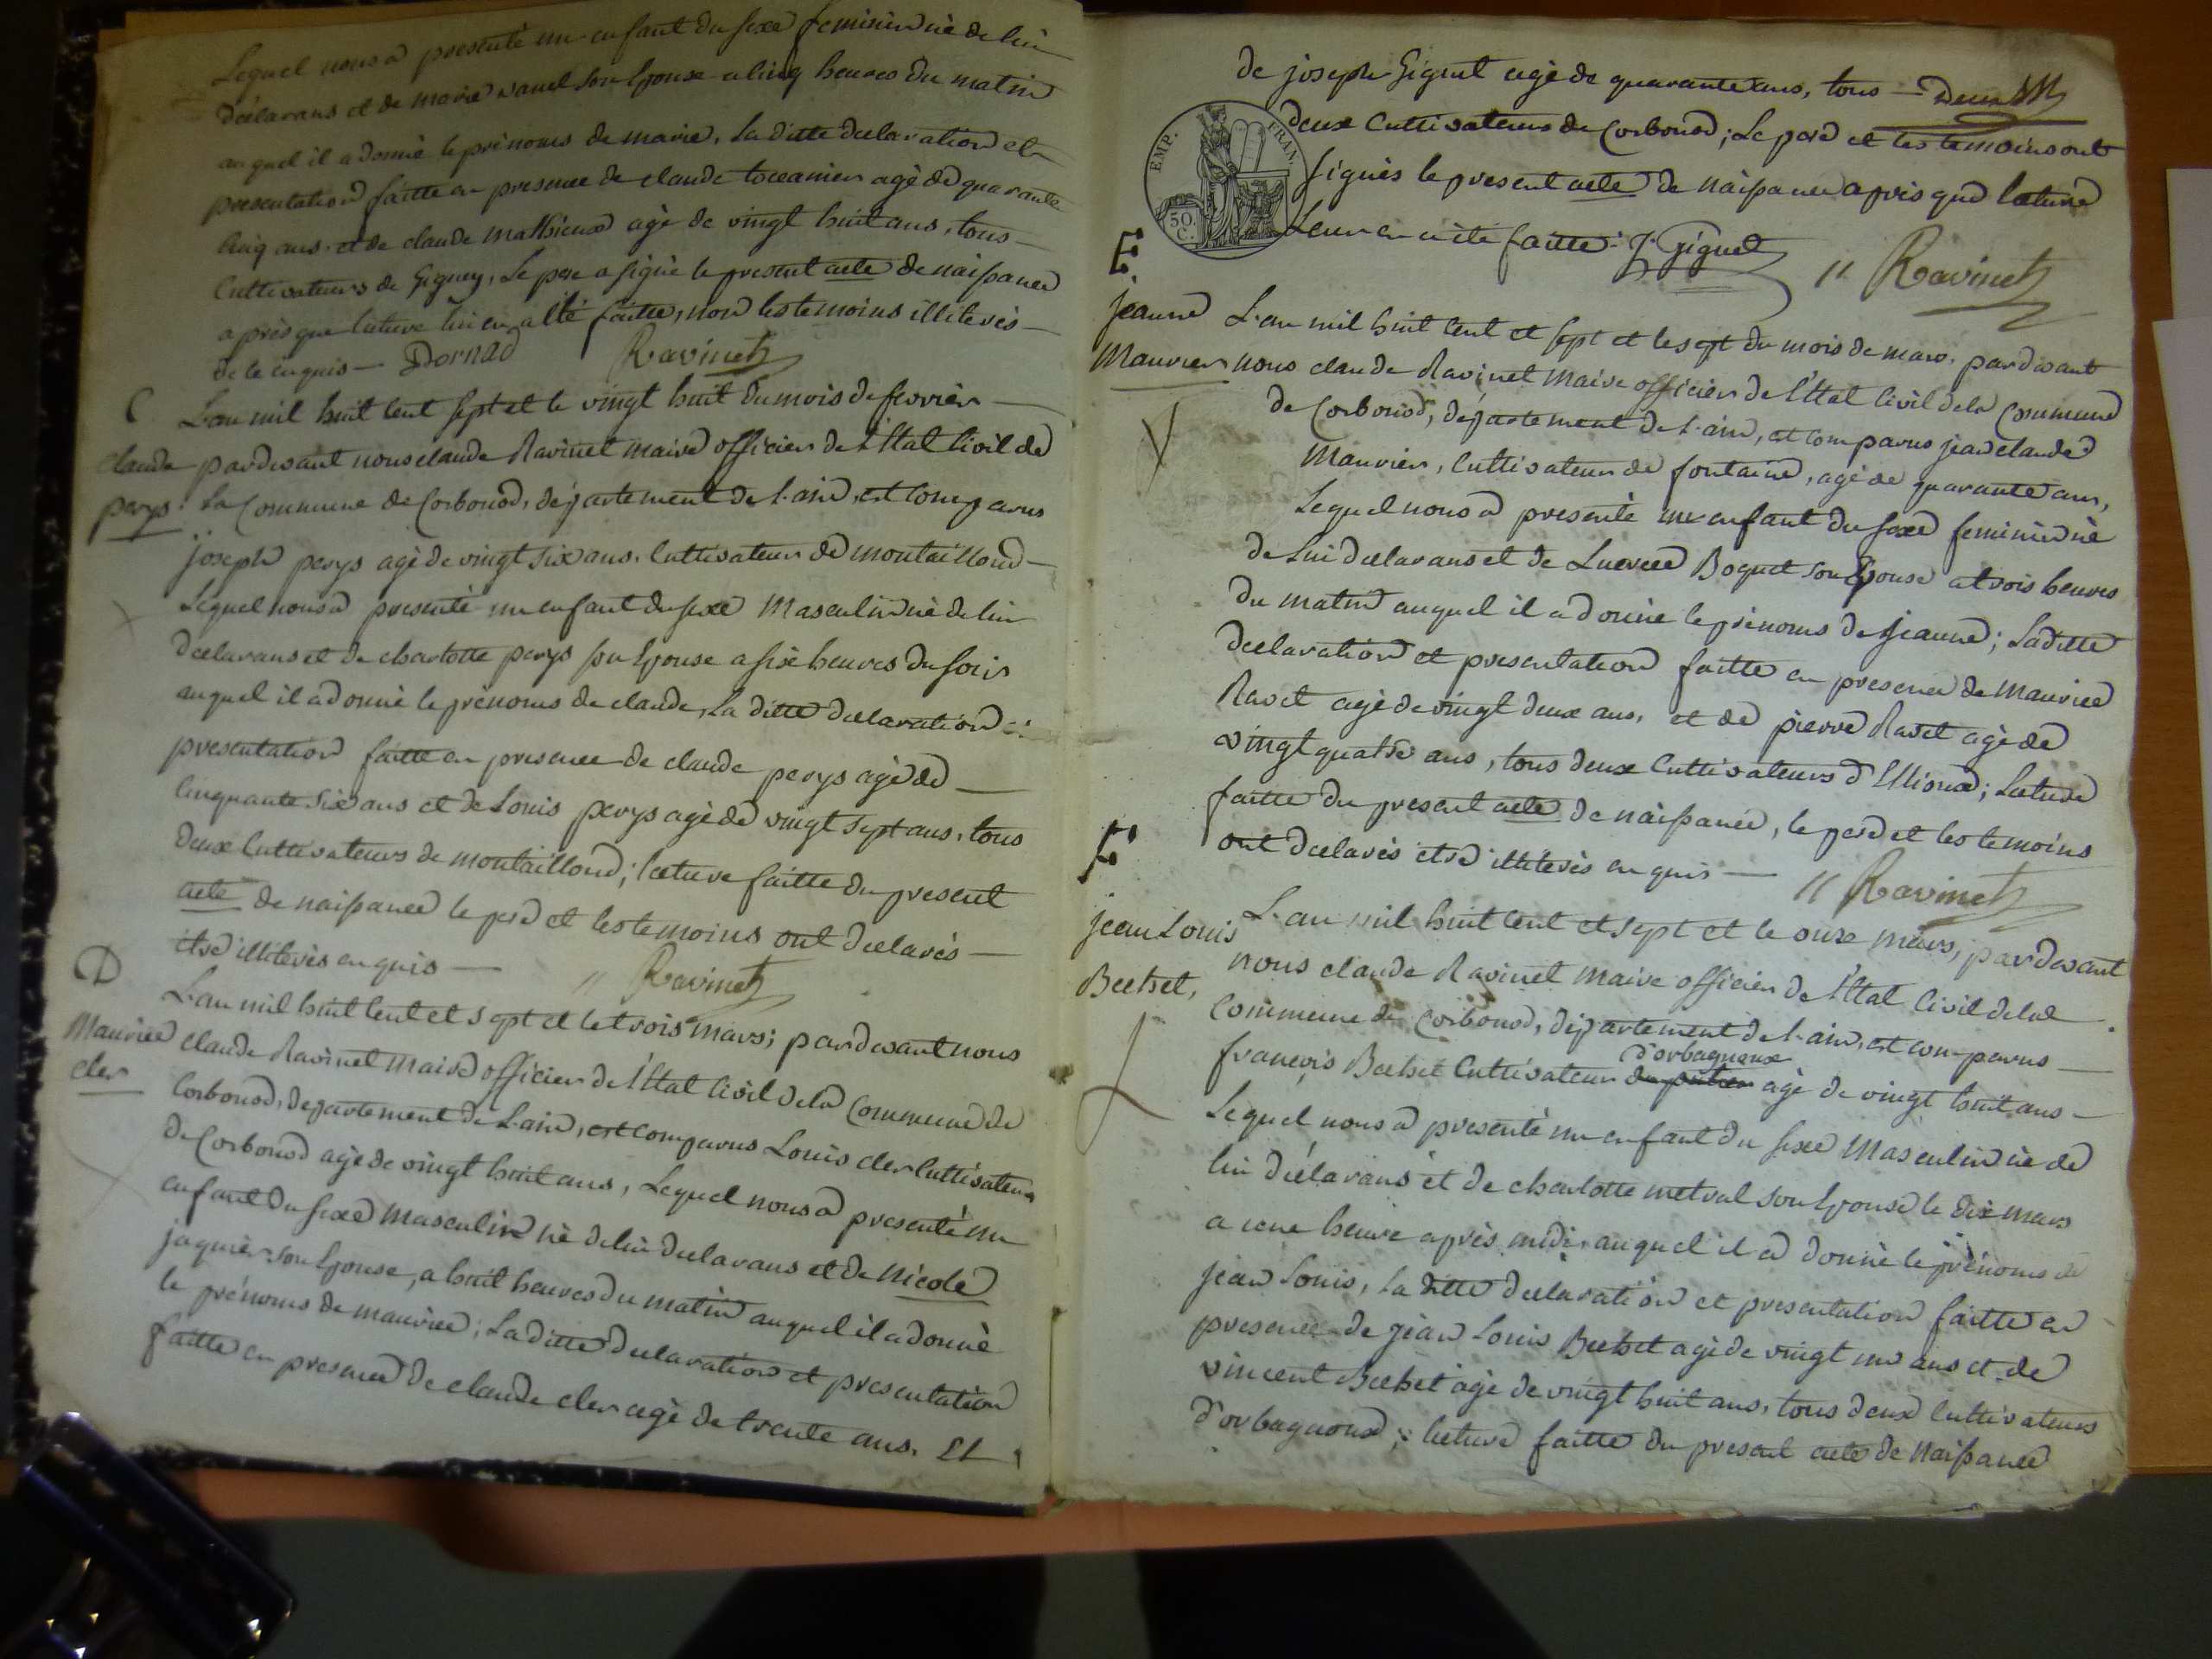 Lequel nous a presenté un enfant du sexe feminin né de lui
déclarans et de marie vauel son Epouse a cinq heures du matin
auquel il a donné le prénoms de marie, la ditte déclaration et
presentation faitte en presence de claude toccanier agé de quarante
cinq ans. et de claude mathieux agé de vingt huit ans, tous
Cultivateurs de Gigney, Le pere a signé le present acte de naissance
après que lecture lui en a été faitte, non les temoins illiterés
de ce enquis — Dornad Ravinet
C L'an mil huit cent sept et le vingt huit du mois de fevrier
claude pardevant nous claude Ravinet maire officier de l'Etat Civil de
perys. la Commune de Corbonod, département de l'ain, est comparus
joseph perys agé de vingt six ans, Cultivateur de montailloud
Lequel nous a presenté un enfant du sexe Masculin né de lui
déclarans et de charlotte perys son Epouse a six heures du soir
auquel il a donné le prénoms de claude, La ditte déclaration et
presentation faitte en presence de claude perys agé de
cinquante six ans et de Louis perys agé de vingt sept ans, tous
deux Cultivateurs de montailloud; lecture faitte du present
acte de naissance le pere et les temoins ont déclarés
etre illiterés enquis — " Ravinet
D L'an mil huit cent et sept et le trois mars; pardevant nous
Maurice claude Ravinet maire officier de l'Etat Civil de la Commune de
cler Corbonod, departement de L'ain, est comparus Louis cler Cultivateur
de Corbonod agé de vingt huit ans, Lequel nous a presenté un
enfant du sexe masculin né de lui déclarans et de Nicole
jaquier son Epouse, a huit heures du matin auquel il a donné
le prénoms de maurice; la ditte déclaration et presentation
faitte en presence de claude cler agé de trente ans. Et
de joseph Giguet agé de quarante ans, tous — Deux
EMP. FRAN. 50. C.
deux Cultivateurs de Corbonod; Le pere et les temoins ont
signés le present acte de naissance après que lecture
Leur en a été faitte: J. Giguet " Ravinet
E.
jeanne L'an mil huit cent et sept et le sept du mois de mars. pardevant
Mauvier nous claude Ravinet Maire officier de l'Etat Civil de la Commune
de Corbonod, département de l'ain, est comparus jean claude
Mauvier, Cultivateur de fontaine, agé de quarante ans,
Lequel nous a presenté un enfant du sexe feminin né
de Lui déclarans et de Lucrece Boquet son Epouse a trois heures
du matin auquel il a donné le prénoms de jeanne; La ditte
declaration et presentation faitte en presence de Maurice
Ravet agé de vingt deux ans, et de pierre Ravet agé de
vingt quatre ans, tous deux Cultivateurs d'Elioux; Lecture
faitte du present acte de naissance, le pere et les temoins
ont declarés etre illiterés enquis — " Ravinet
F
jean Louis L'an mil huit cent et sept et le onze mars, pardevant
Bechet, nous claude Ravinet Maire officier de l'Etat Civil de la
Commune de Corbonod, département de l'ain, est comparus
d'orbagnoux
françois Bechet Cultivateur agé de vingt huit ans
Lequel nous a presenté un enfant du sexe Masculin né de
lui déclarans et de charlotte metral son Epouse le dix mars
a une heure après midi, auquel il a donné le prénoms de
jean Louis, la ditte déclaration et presentation faitte en
presence de jean Louis Bechet agé de vingt un ans et de
vincent Bechet agé de vingt huit ans, tous deux Cultivateurs
d'orbagnoux; lecture faitte du present acte de naissance